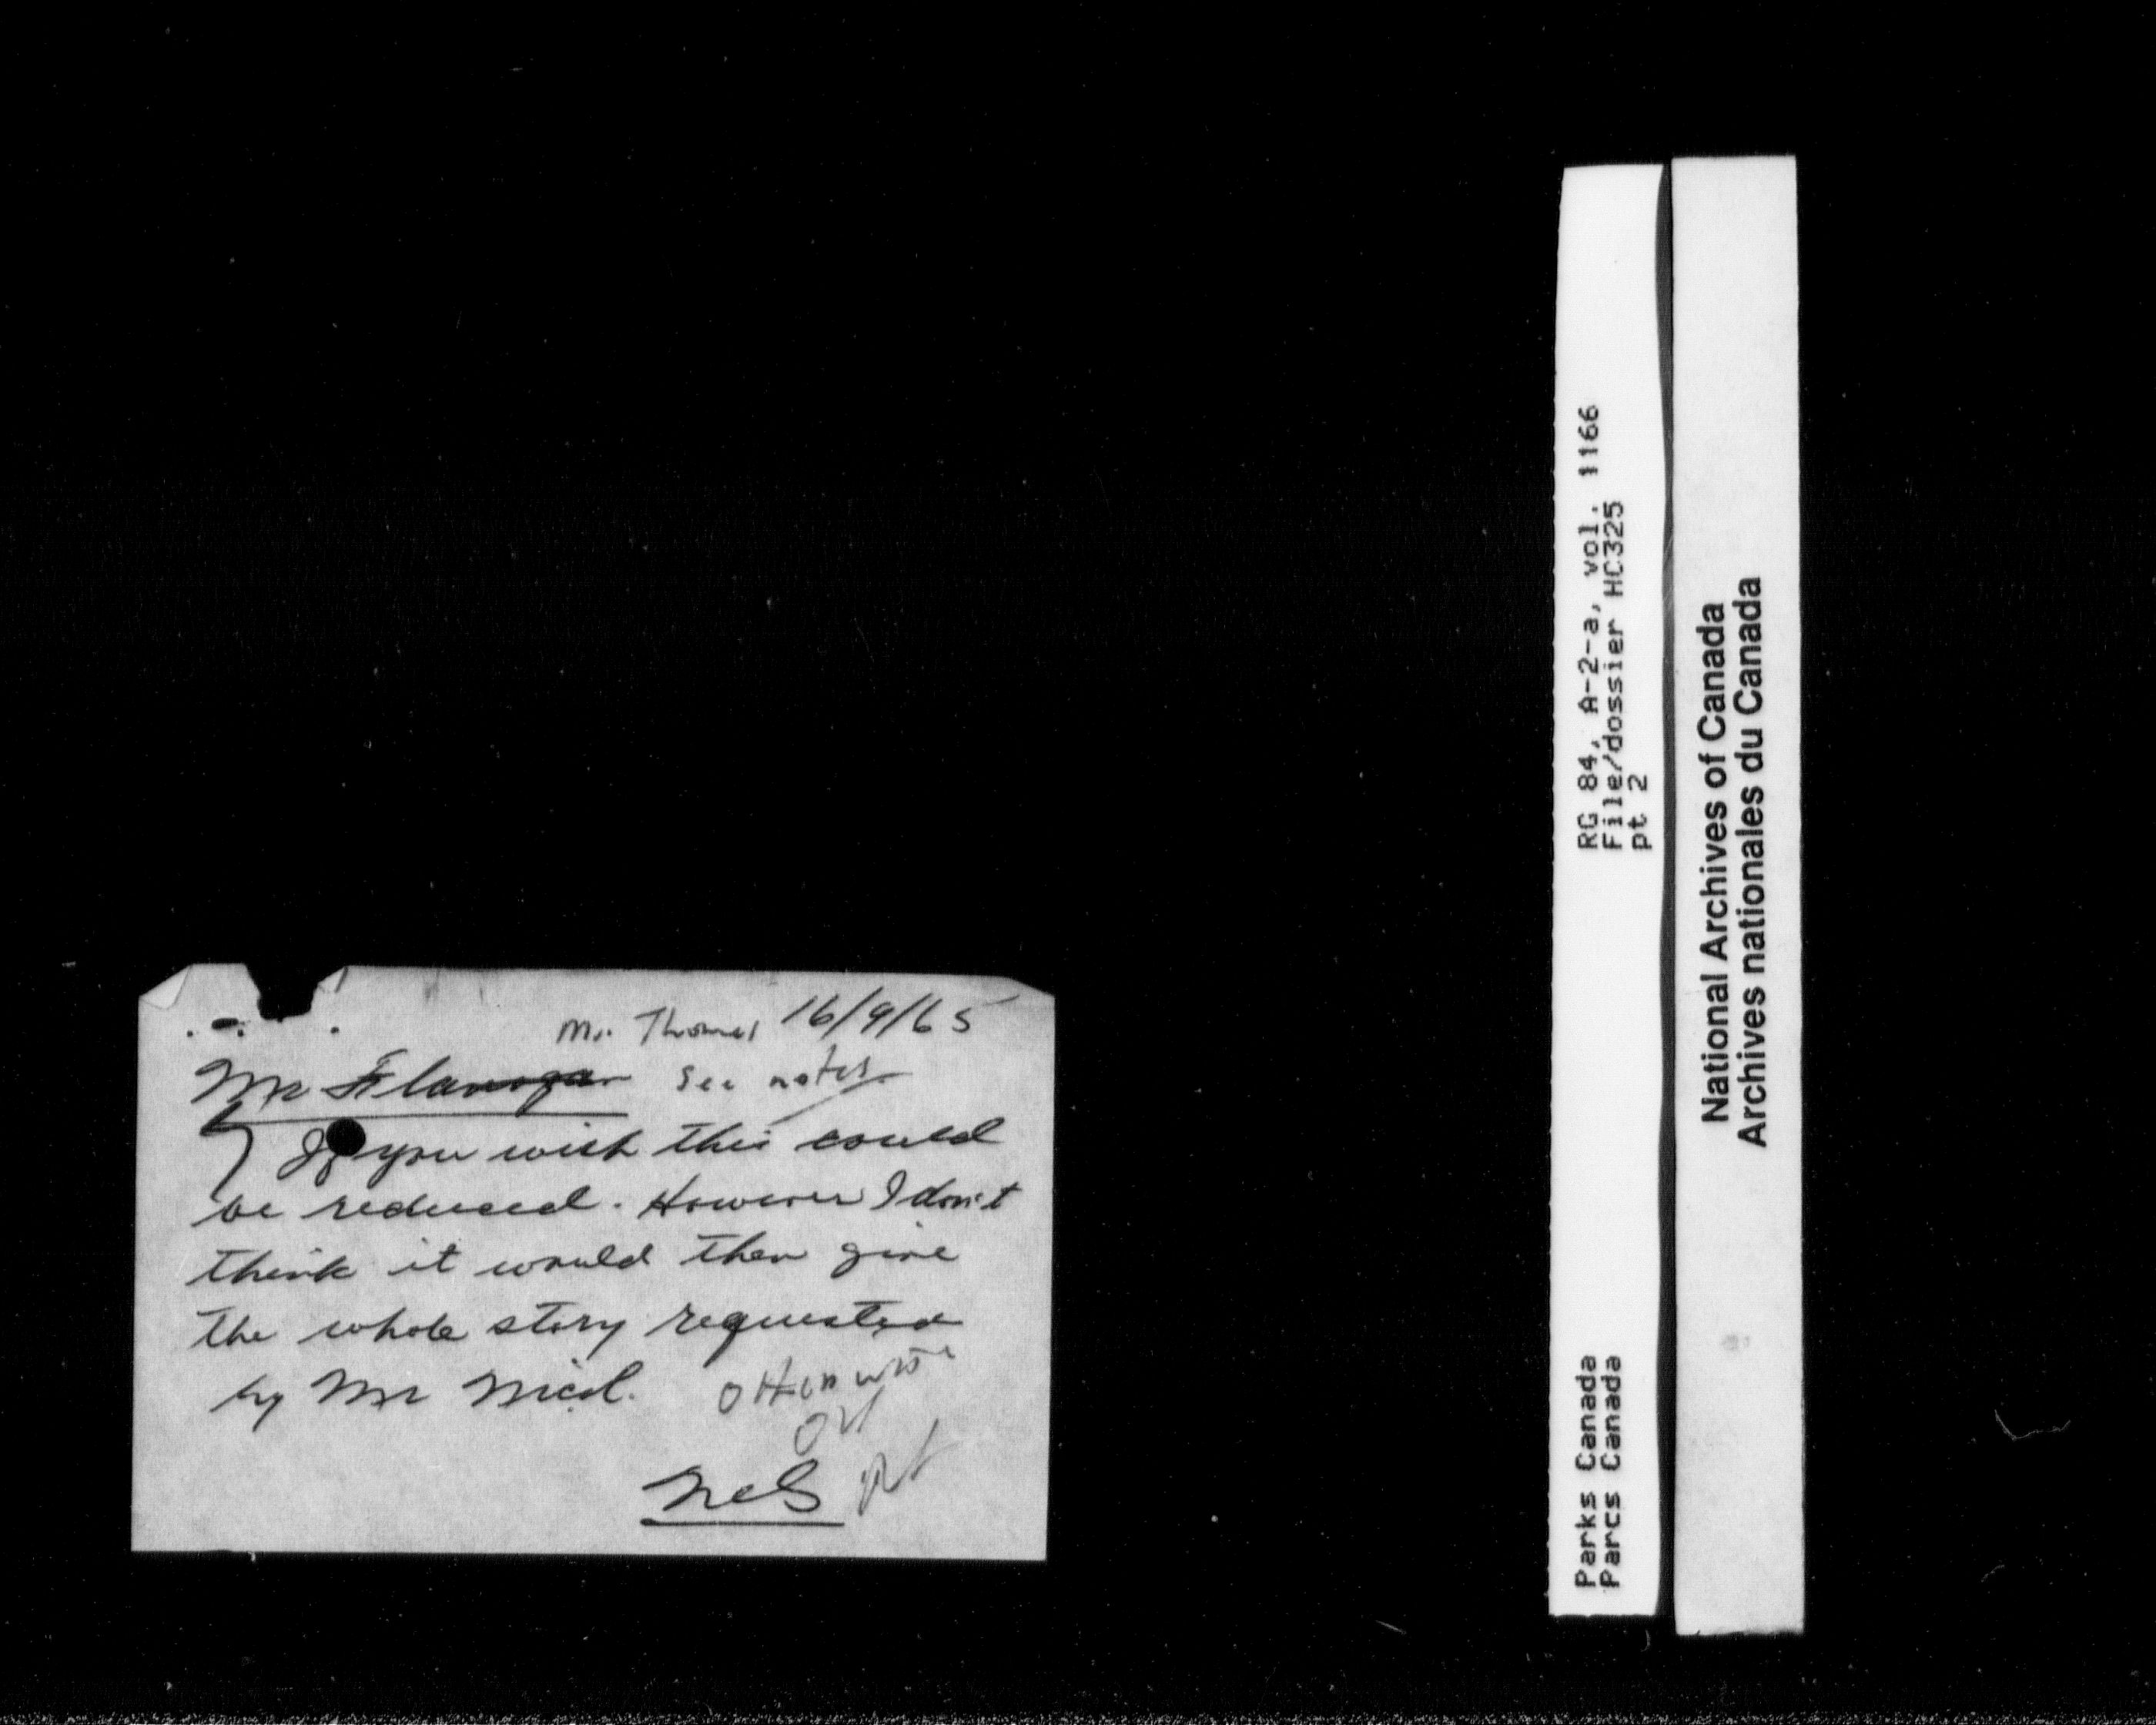 Mr. Thomas 16/9/65
Mr Flanagan see notes
If you wish this could
be reduced. However I don't
think it would then give
the whole story requested
by Mr Nicol.
Otherwise
OK
RG 84, A-2-a, vol. 1166
File/dossier HC325
pt 2
Parks Canada
Parcs Canada
National Archives of Canada
Archives nationales du Canada